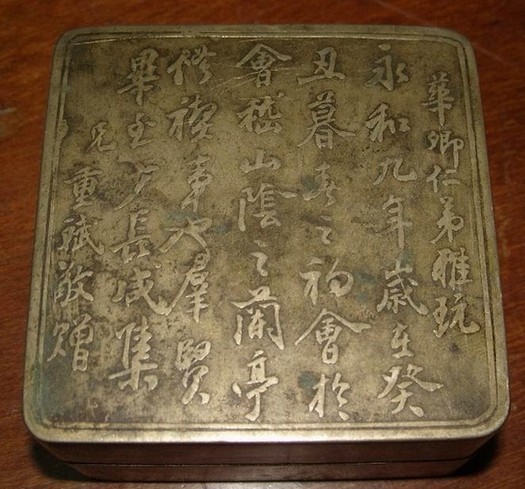 華卿仁弟雅玩
永和九年歲在癸
丑暮春之初會於
會嵇山陰之蘭亭
修禊事也羣賢
畢至少長咸集
兄重敬贈